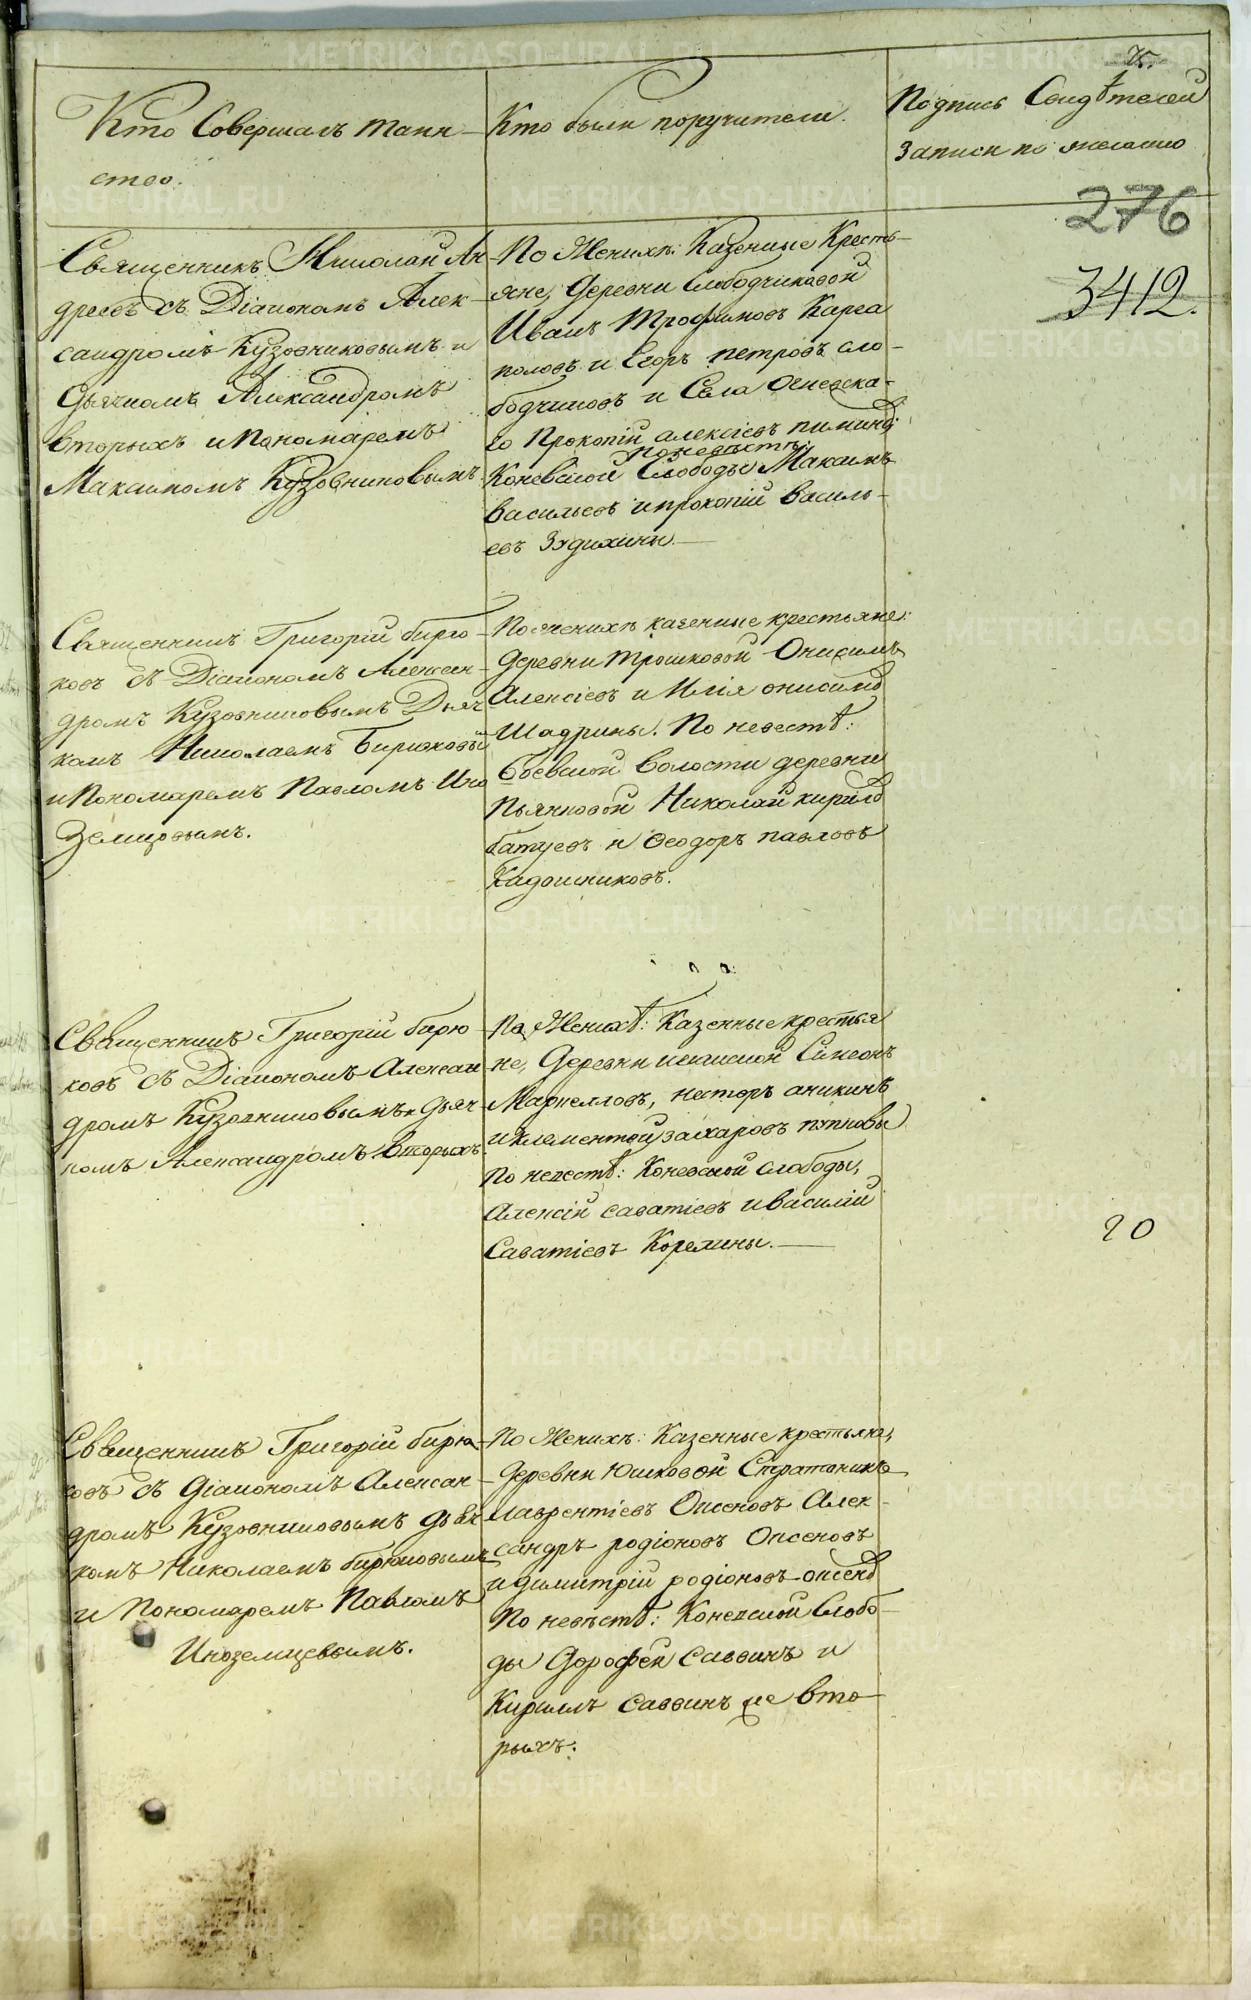 Кто Совершалъ таин-
ство.
Кто были поручители.
Подпись Свидѣтелей
Записи по желанію
276
3412.
Священникъ Николай Ан-
дреевъ съ Діакономъ Алек-
сандромъ Кузовниковымъ и
Дьячкомъ Александромъ
Вторыхъ и Пономаремъ
Максимомъ Кузовниковымъ.
По Женихѣ: Казенные Кресть-
яне, Деревни Слободчиковой
Иванъ Трофимовъ Карга
половъ и Егоръ петровъ сло-
бодчиковъ и Села Огневска-
го Прокопій алексіевъ
по невѣстѣ:
Коневской Слободы Максимъ
Васильевъ и прокопій василь-
евъ
Священникъ Григорій бирю-
ковъ съ Діакономъ Алексан-
дромъ Кузовниковымъ Дьяч-
комъ Николаемъ Бирюковы
и Пономаремъ Павломъ Ино
Земцовымъ.
По женихѣ казенные крестьяне:
Деревни Трошковой Онисимъ
Алексіевъ и Илія онисимо
Шадрины. По невестѣ:
боевской волости деревни
Пьянковой Николай кирило
батуевъ и Ѳеодоръ павловъ
Кадошниковъ.
Священникъ Григорій бирю
ковъ съ Діакономъ Алексан
дромъ Кузовниковымъ и дьяч-
комъ Александромъ вторыхъ.
По Женихѣ: Казенные крестья
не, Деревни Сімеонъ
Маркелловъ, несторъ аникинъ
и Климентой захаровъ пупковы
По невестѣ: Коневской слободы,
Алексій саватіевъ и василій
Саватіевъ Корелины.
20
Священникъ Григорій бирю-
ковъ съ діакономъ Алексан-
дромъ Кузовниковымъ дьяч
комъ Николаемъ бирюковымъ
и Пономаремъ Павломъ
Иноземцевымъ.
По Женихѣ: Казенные крестьяне,
деревни Юшковой Стратоникъ
лаврентіевъ Оксеновъ Алек-
сандръ родіоновъ Оксеновъ
и димитрій родіоновъ оксено
По невѣстѣ: Коневской Слобо-
ды Дорофей саввинъ и
Кирилъ саввинъ же вто-
рыхъ: